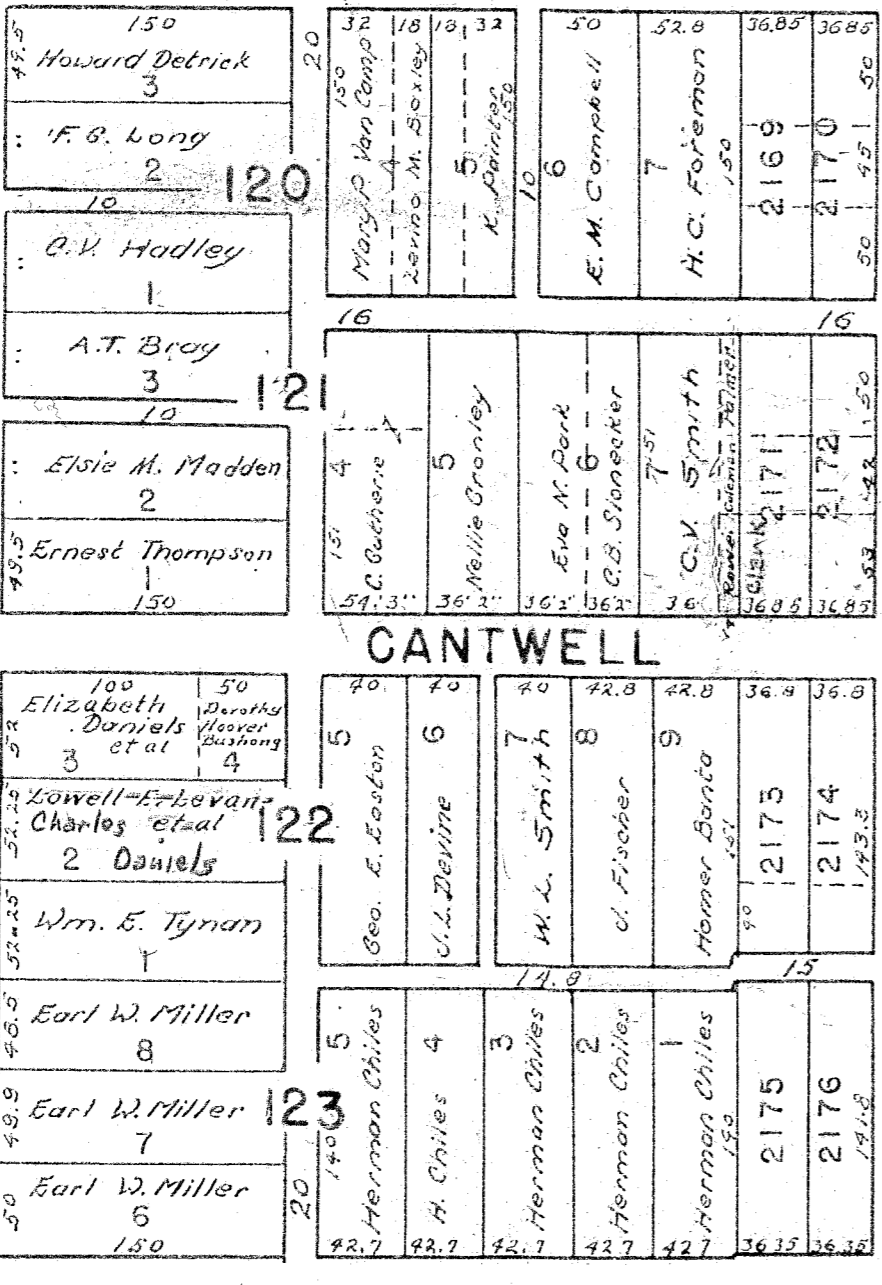 150
49.5
Howard Detrick
3
F. G. Long
2
120
10
C.V. Hadley
1
A.T. Bray
3
121
10
Elsie M. Madden
2
49.5
Ernest Thompson
1
150
20
32
150
Mary P. Van Camp
4
18
Levina M. Boxley
18
32
5
K. Painter
150
10
50
6
E. M. Campbell
52.8
7
H. C. Foremon
150
36.85
2169
36.85
2170
50
45
50
16
16
4
151
C. Gutherie
54'3"
5
Nellie Cronley
36'2"
Eva N. Park
6
C.B. Sloneeker
36'2"
36'2"
7
151
C.V. Smith
36
Coleman Palmer
2171
Clank
36.85
2172
50
42
53
36.85
CANTWELL
100
52
Elizabeth
Daniels
et al
3
50
Dorothy
Hoover
Bushong
4
52.25
Lowell E. Levan
Charles et al
2 Daniels
122
52.25
Wm. E. Tynan
1
48.5
Earl W. Miller
8
49.9
Earl W. Miller
7
123
50
Earl W. Miller
6
150
20
40
5
Geo. E. Easton
40
6
J. L. Devine
40
7
W. L. Smith
42.8
8
J. Fischer
42.8
9
Homer Banta
151
36.8
2173
90
36.8
2174
143.3
14.8
15
5
140
Herman Chiles
42.7
4
H. Chiles
42.7
3
Herman Chiles
42.7
2
Herman Chiles
42.7
1
Herman Chiles
140
42.7
2175
36.35
2176
141.8
36.35